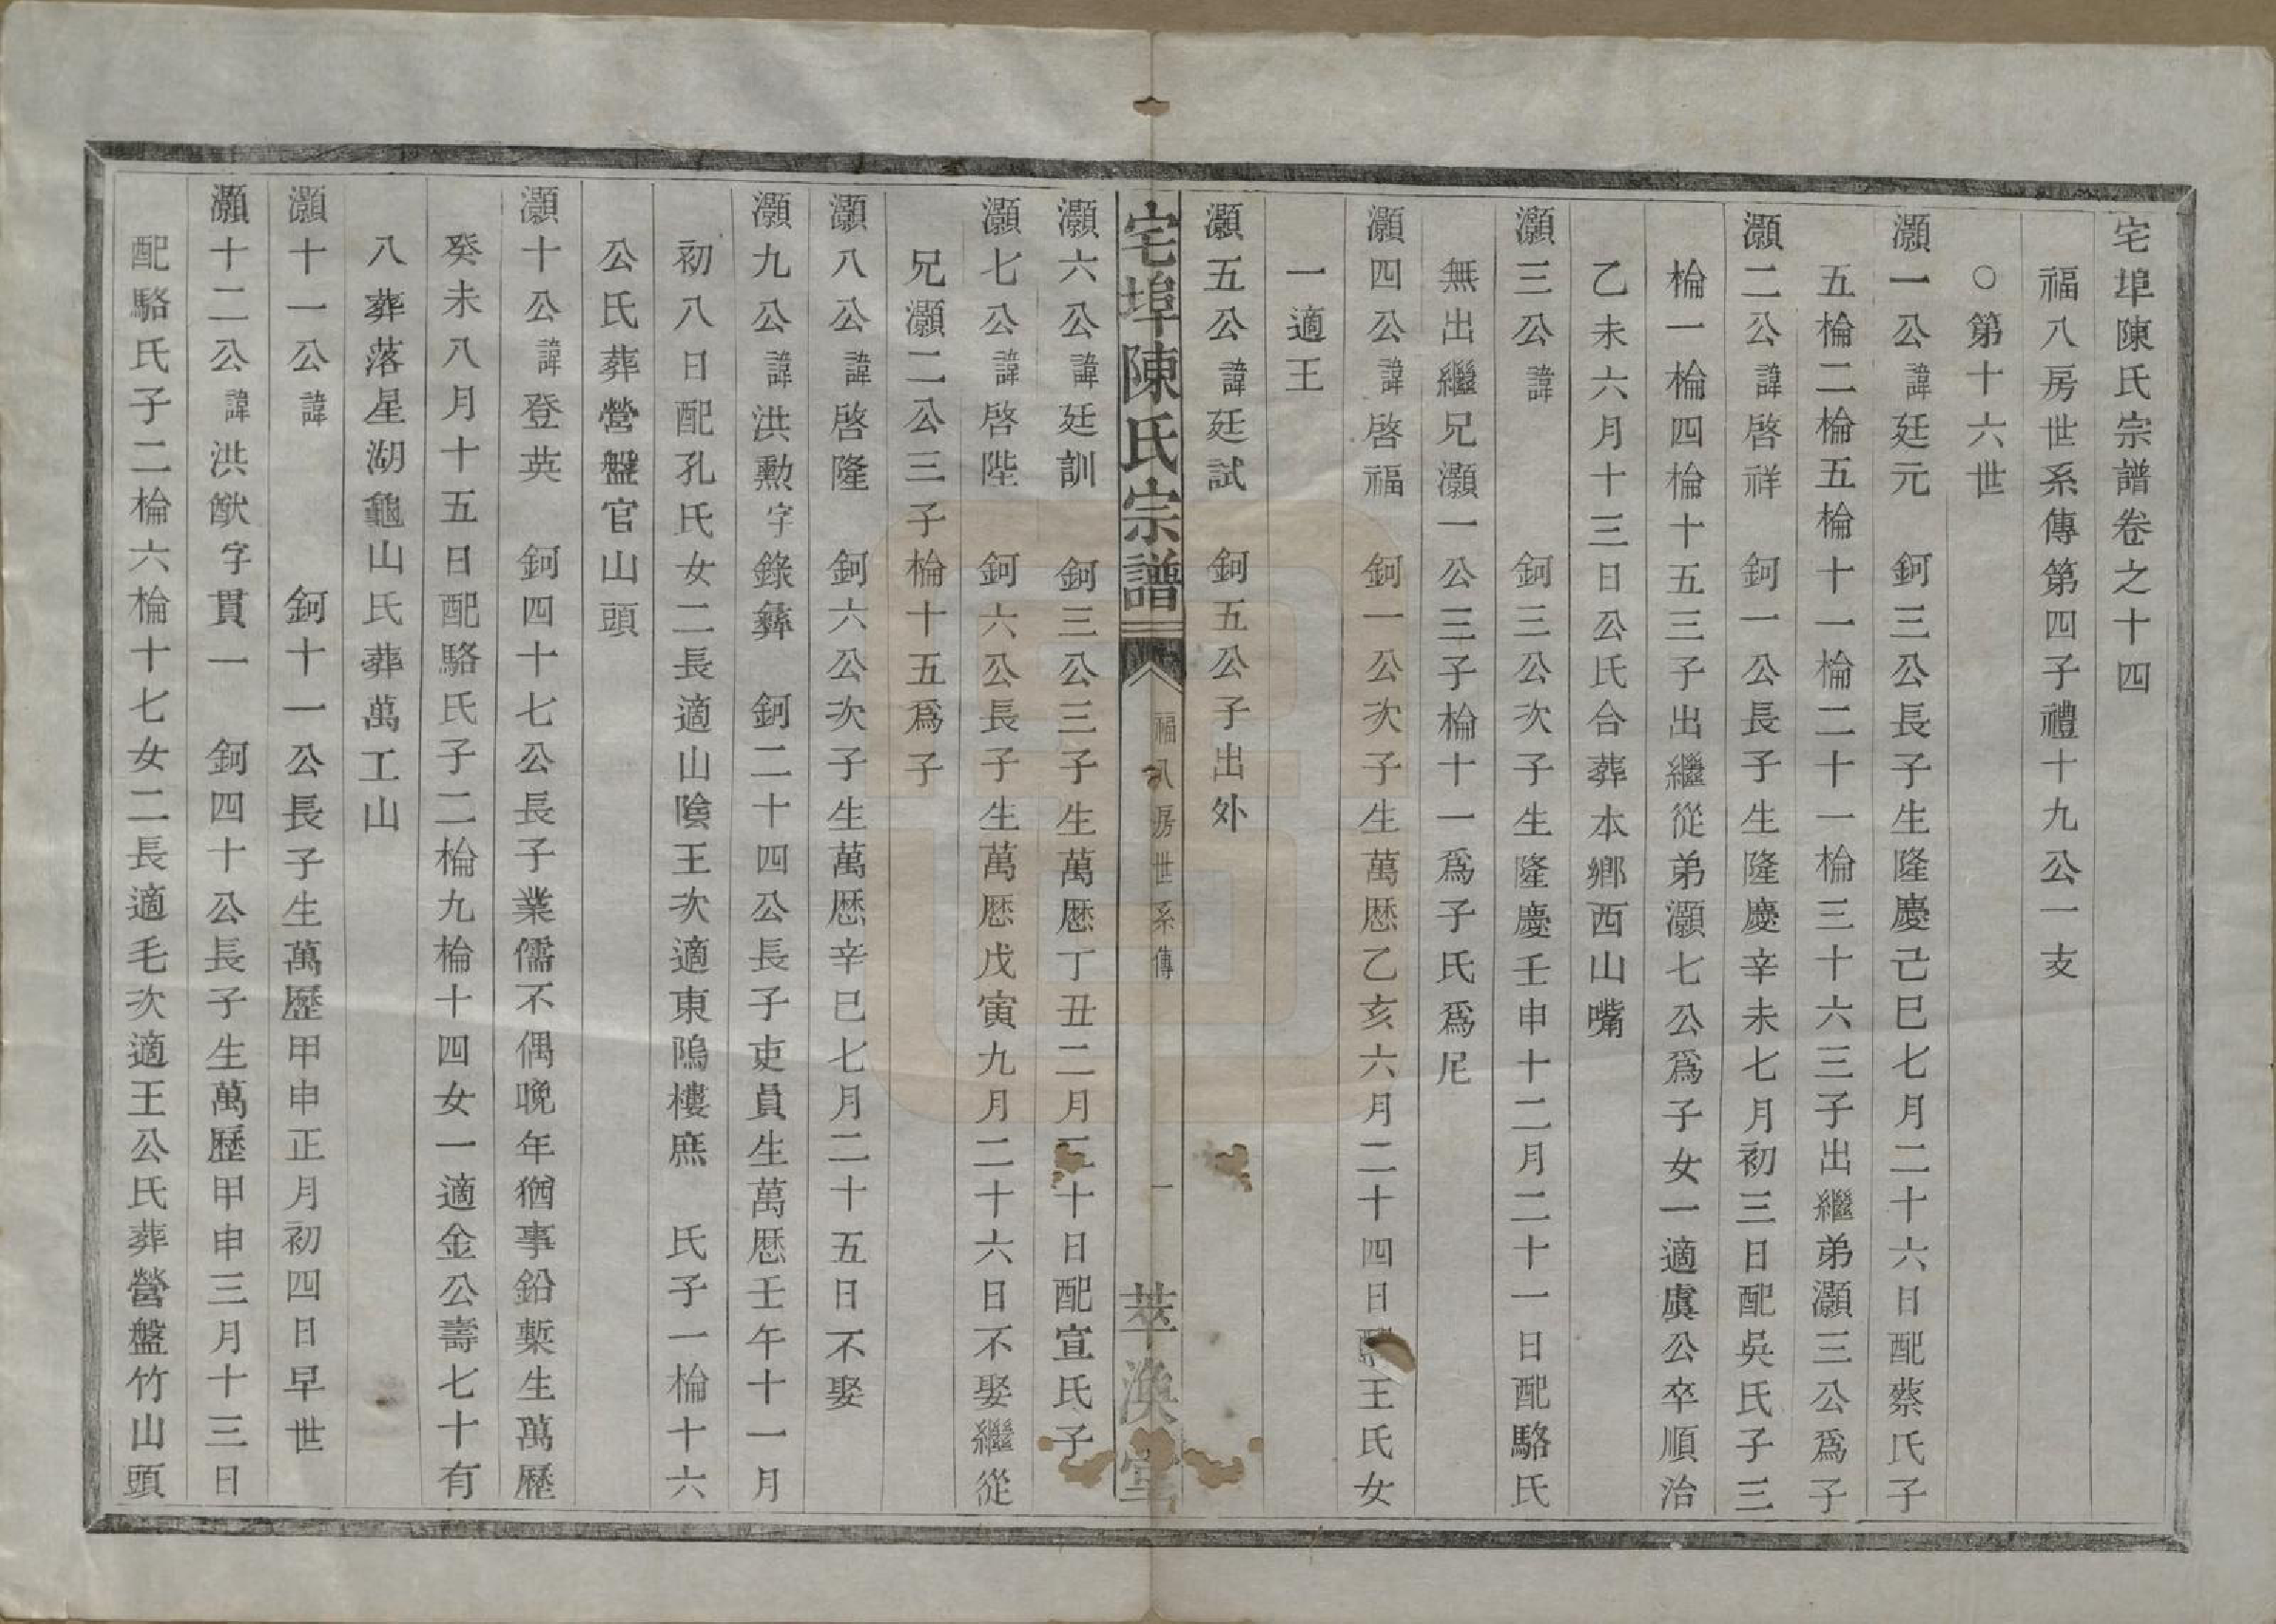 宅埠陳氏宗譜卷之十四
福八房世系傳第四子禮十九公一支
○第十六世
灝一公諱廷元 鈳三公長子生隆慶己巳七月二十六日配蔡氏子
五棆二棆五棆十一棆二十一棆三十六三子出繼弟灝三公爲子
灝二公諱啓祥 鈳一公長子生隆慶辛未七月初三日配吳氏子三
棆一棆四棆十五三子出繼從弟灝七公爲子女一適虞公卒順治
乙未六月十三日公氏合葬本鄉西山嘴
灝三公諱 鈳三公次子生隆慶壬申十二月二十一日配駱氏
無出繼兄灝一公三子棆十一爲子氏爲尼
灝四公諱啓福 鈳一公次子生萬厯乙亥六月二十四日配王氏女
一適王
灝五公諱廷試 鈳五公子出外
宅埠陳氏宗譜 福八房世系傳 一 萃渙堂
灝六公諱廷訓 鈳三公三子生萬厯丁丑二月 十日配宣氏子
灝七公諱啓陛 鈳六公長子生萬厯戊寅九月二十六日不娶繼從
兄灝二公三子棆十五爲子
灝八公諱啓隆 鈳六公次子生萬厯辛巳七月二十五日不娶
灝九公諱洪勳字錄彞 鈳二十四公長子吏員生萬厯壬午十一月
初八日配孔氏女二長適山陰王次適東鳴樓庶 氏子一棆十六
公氏葬營盤官山頭
灝十公諱登英 鈳四十七公長子業儒不偶晚年猶事鉛槧生萬歷
癸未八月十五日配駱氏子二棆九棆十四女一適金公壽七十有
八葬落星湖龜山氏葬萬工山
灝十一公諱 鈳十一公長子生萬歷甲申正月初四日早世
灝十二公諱洪猷字貫一 鈳四十公長子生萬歷甲申三月十三日
配駱氏子二棆六棆十七女二長適毛次適王公氏葬營盤竹山頭